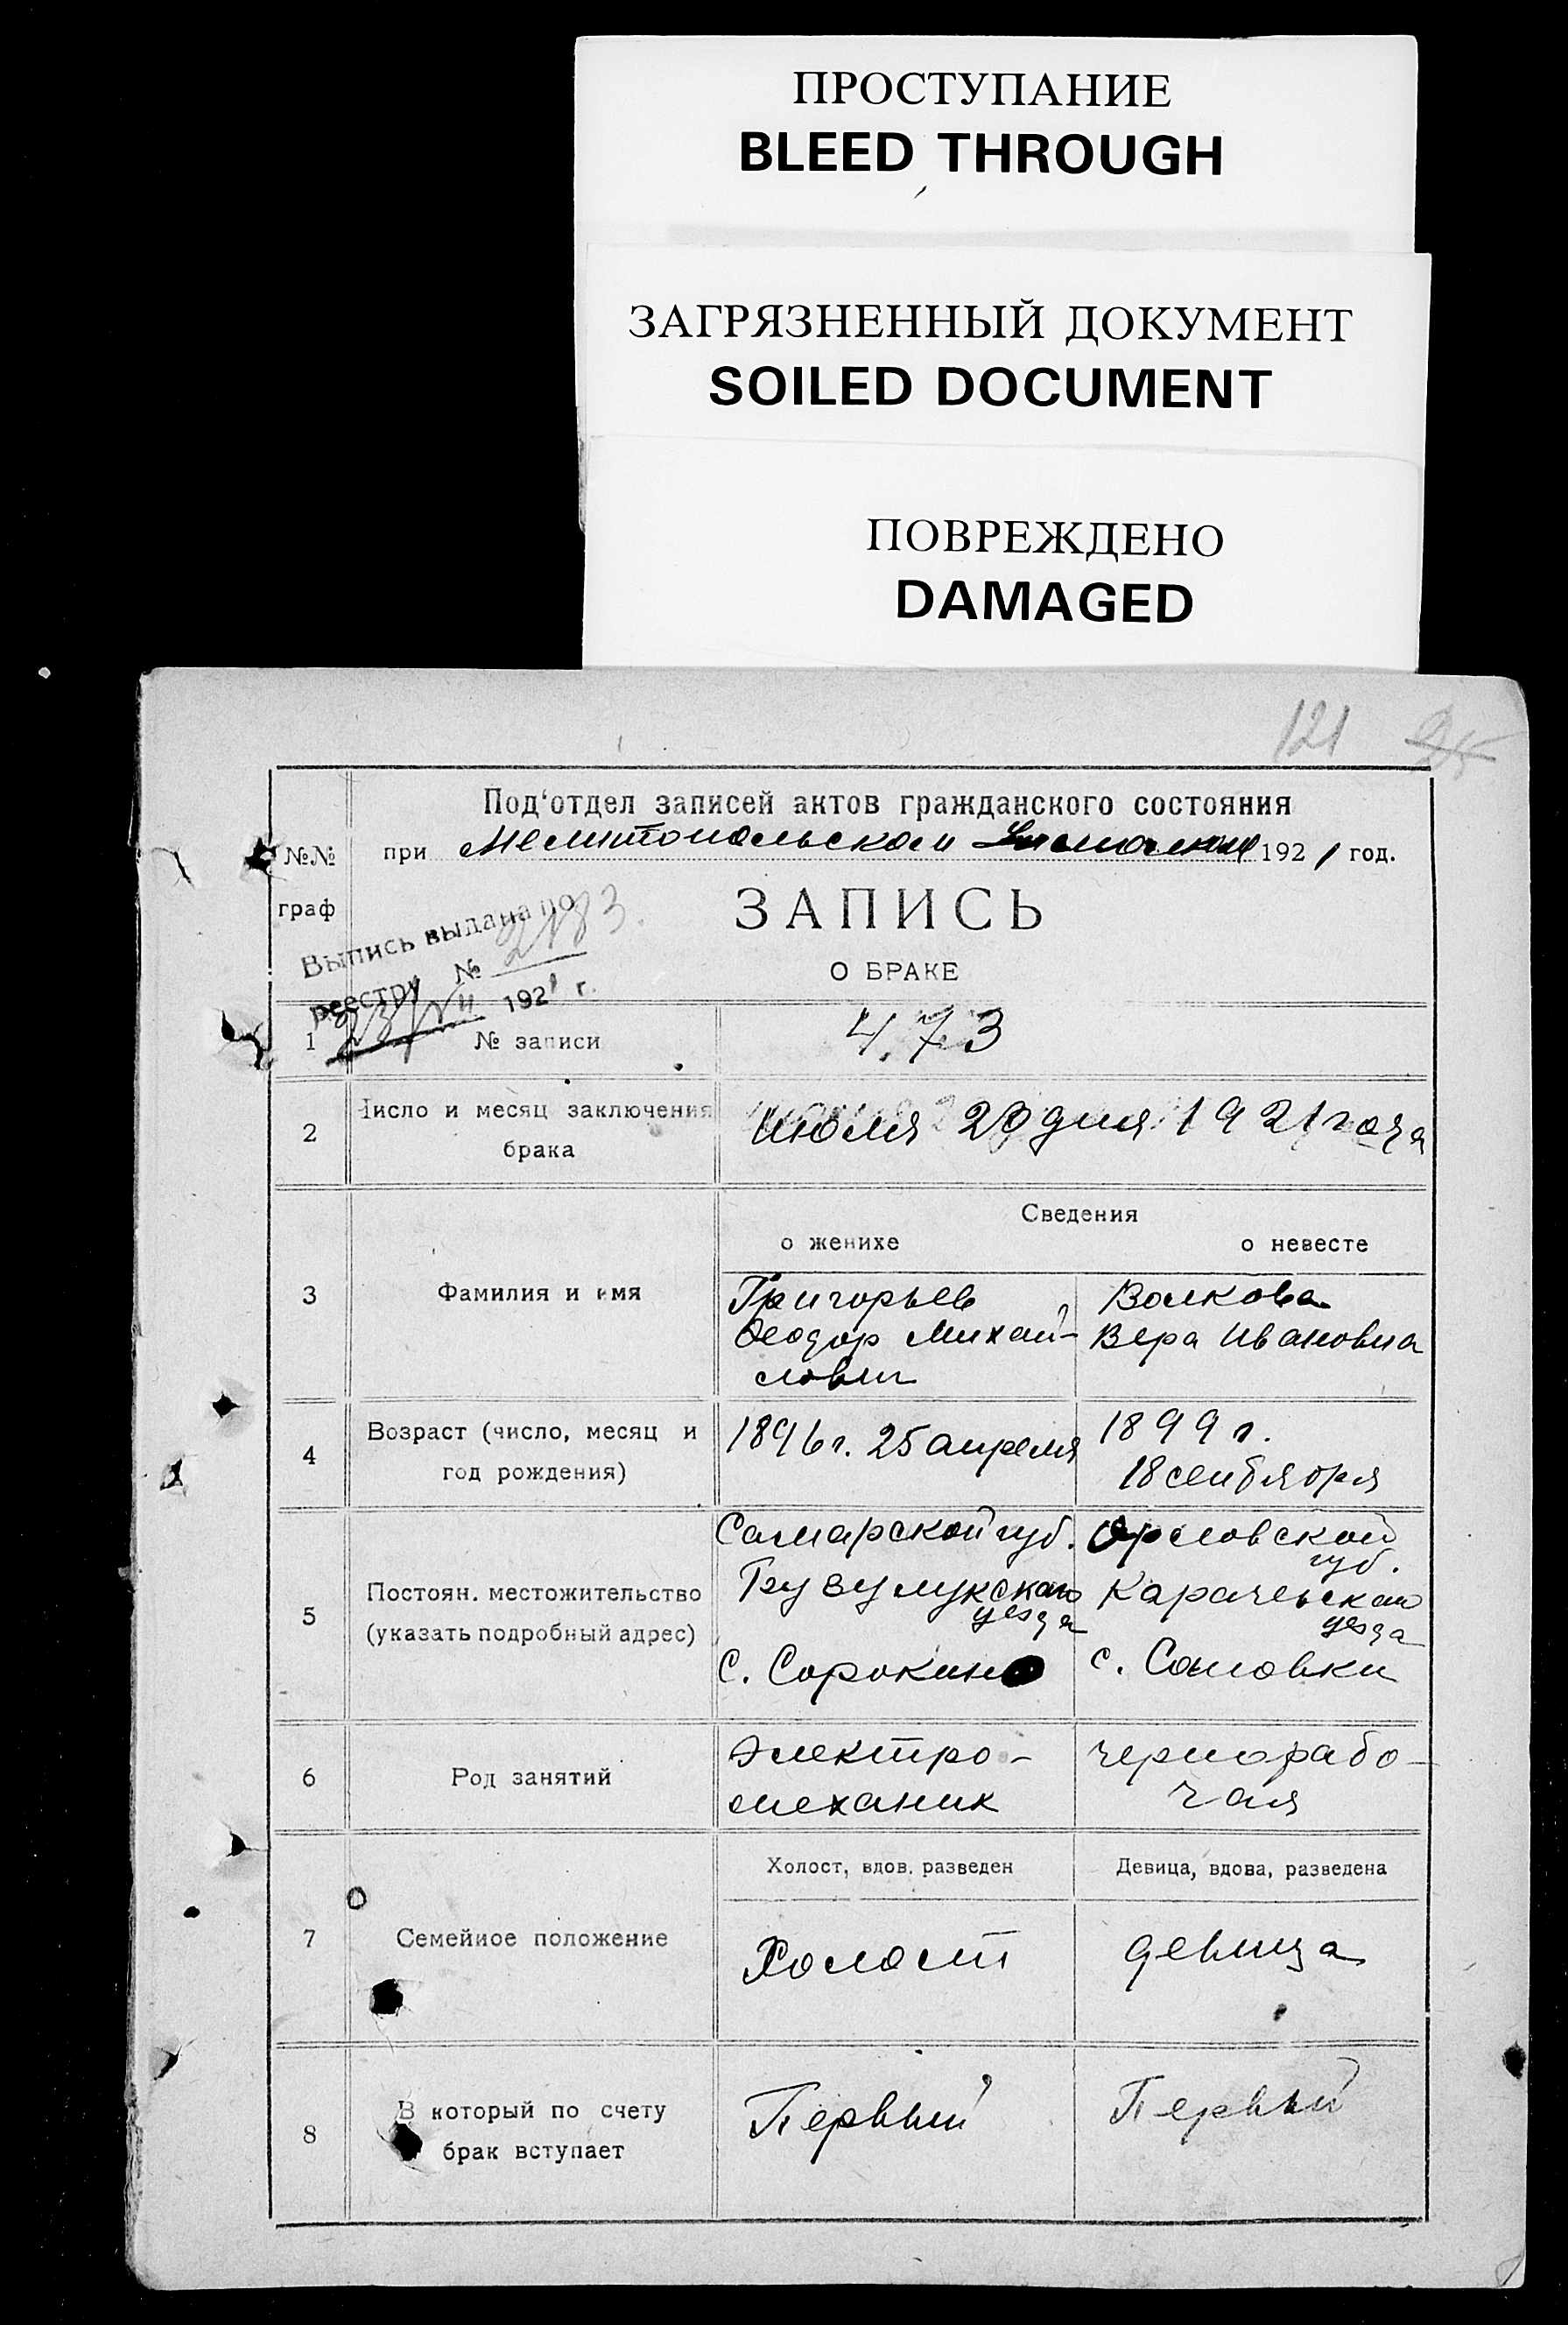 ПРОСТУПАНИЕ
BLEED THROUGH
ЗАГРЯЗНЕННЫЙ ДОКУМЕНТ
SOILED DOCUMENT
ПОВРЕЖДЕНО
DAMAGED
121
№№ граф
Под'отдел записей актов гражданского состояния
при Мелитопольском 1921 год.
ЗАПИСЬ
О БРАКЕ
Выпись выдана по
реестру № 2183.
23/VII 1921 г.
1 № записи 473
2 Число и месяц заключения брака
Июля 20 дня 1921 года
Сведения
о женихе о невесте
3 Фамилия и имя
Григорьев
Феодор Михай-
лович
Волкова
Вера Ивановна
4 Возраст (число, месяц и
год рождения)
1896 г. 25 апреля
1899 г.
18 сентября
5 Постоян. местожительство
(указать подробный адрес)
Самарской губ.
Бузулукского
уезда
с. Сорокино
Орловской
губ.
Карачевского
уезда
с.
6 Род занятий
Электро-
механик
чернорабо-
чая
7 Семейное положение
Холост, вдов, разведен
Девица, вдова, разведена
Холост
девица
8 В который по счету
брак вступает
Первый
Первый